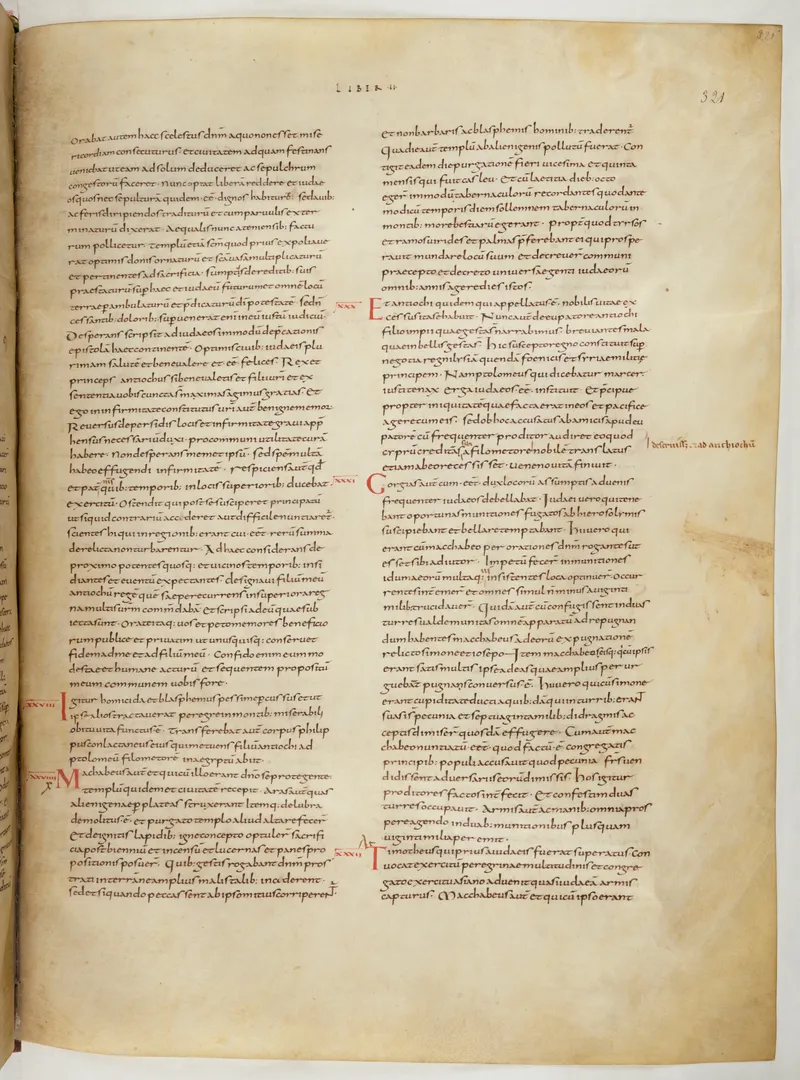 LIBER II
321
orabat autem haec scelestus dnm a quo non esset mise
ricordiam consecuturus. et ciuitatem ad quam festinans
ueniebat ut eam ad solum deduceret ac sepulchrum
congestorū faceret. nunc optat liberā reddere et iudae
os quos nec sepultura quidem eē dignos habiturū. sed auib:
ac feris diripiendos traditurū et cum paruulis exter
minaturū dixerat. aequalis nunc atheniensib: factu
rum pollicetur. templū etiā scm quod prius expoliaue
rat optimis donis ornaturū et sca uasa multiplicaturū
et pertinentes ad sacrificia sumptus de reditib: suis
praestaturū sup haec et iudaeū futurum et omnē locū
terrae perambulaturū et pdicaturū dī potestatē. sed n
cessantib: dolorib: supuenerat enī in eū iustū dī iudiciū
Desperans scripsit ad iudaeos in modū depcationis
epistolā haec continentē. Optimis ciuib: iudaeis plu
rimam salutē et bene ualere et eē felices. Rex et
princeps antiochus si bene ualetis et filii uri et ex
sententia uobis cuncta s maximas agimus gratias. Et
ego in infirmitate constitutus uri aut benigne memor
Reuersus de persidis locis et infirmitate graui app
hensus necessariū duxi pro communi utilitate curā
habere. Non desperans memet ipsū sed spem multā
habeo effugendi infirmitatē. respiciens aut qd
et pat quib: temporib: in locis superiorib: ducebat
exercitū. Ostendit qui post se susciperet principatū
ut si quid contrariū accideret aut difficile nuntiaret
scientes hi qui in regionib: erant cui eēt rerū summa
derelicta non turbarentur. Ad haec considerans de
proximo potentes quosq: et uicinos temporib: insi
diantes et euentū expectantes designaui filiū meū
antiochū regē quē saepe recurrens in superiora reg
na multis urm commdabā. Et scripsi ad eū quae sub
iecta sunt. Oro itaq: uos et peto memores beneficio
rum publice et priuatim ut unusquisq: conseruet
fidem ad me et ad filiū meū. Confido enim eum mo
deste et humane acturū et sequentem propositū
meum communem uobis fore.
XXVIII Igitur homicida et blasphemus pessime pcussus et ut
ipse alios tractauerat peregre in montib: miserabili
obitu uita functus ē. Transferebat aut corpus philip
pus conlactaneus eius qui metuens filiū antiochi ad
ptolomeū filometorē in aegyptū abiit.
XXVIIII Machabeus aut et qui cū illo erant dno se protegente.
templū quidem et ciuitatē recepit. Aras aut quas
alienigenae p plateas struxerant Itemq: delubra
demolitus ē. et purgato templo aliud altare fecer
Et de ignitis lapidib: igne concepto optuler sacrifi
cia post biennium et incensū et lucernas et panes pro
positionis posuer. Quib: gestis rogabant dnm pros
trati in terrā ne amplius malis talib: inciderent.
sed et si quando peccassent ab ipso mitius corriperent.
et non barbaris ac blasphemis hominib: traderent
Qua die aut templū ab alienigenis pollutū fuerat. Con
tigit eadem die purgationē fieri uicesima et quinta
mensis qui fuit casleu. Et cū laetitia dieb: octo
eger in modū tabernaculorū recordantes quod ante
modicū temporis diem sollemnem tabernaculorū in
montib: more bestiarū egerant. Propt quod tyrsos
et ramos uirides et palmas pferebant ei qui prospe
rauit mundare locū suum. et decreuer communi
praecepto et decreto uniuersae genti iudaeorū
omnib: annis agere dies istos.
XXX Et antiochi quidem qui appellatus ē nobilis uitae ex
cessus ita se habuit. Nunc aut de eupatore antiochi
filio impii quae gesta s narrabimus. breuiantes mala
quae in bellis gesta s. Hic suscepto regno constituit sup
negotia regni lysiā quendā foenicis et syriae militię
principem. Nam ptolomeus qui dicebatur macer.
iusti tenax erga iudaeos eē instituit. Et pcipue
propter iniquitatē quae facta erat in eos et pacifice
agere cum eis. sed ob hoc accusatus ab amicis apud eu
patorē cū frequenter proditor audiret eo quod
cyprū creditā sibi a filometore nobilē translatus
descruiss. ad anthiochū
etiam ab eo recessisset. ueneno uitā finiuit.
XXXI Gorgias aut cum eēt dux locorū assumptis aduenis
frequenter iudaeos debellabat. Iudaei uero qui tene
bant oportunas munitiones fugatos ab hierosolymis
suscipiebant et bellare temptabant. Hi uero qui
erant cū macchabeo per orationes dnm rogantes ut
esset sibi adiutor. Impetū fecer in munitiones
idumaeorū multaq: ui insistentes loca optinuer. occur
rentes intemer et omnes simul n minus uiginti
milib: trucidauer. Quidā aut cū confugissent in duas
turres ualde munitas omnē apparatū ad repugnan
dum habentes macchabeus ad eorū expugnationē
relicto simone et iosepo. Item macchabeo eisq: qui cū ipsis
erant satis multis ipse ad eas quae amplius per ur
guebat pugnas conuersus ē. Hi uero qui cū simone
erant cupiditate ducti a quib: dā qui in turrib: erant
suasi s pecunia et septuaginta milib: didragmis ac
ceptis dimiser quosdā effugere. Cum aut mac
chabeo nuntiatū eēt quod factū ē congregatis
principib: populi accusauit quod pecunia frs uen
didissent aduersariis eorū dimissis. Hos igitur
proditores factos int fecit. Et confestim duas
turres occupauit. Armis aut ac manib: omnia pros
pere agendo in duab: munitionibus plus quam
uiginti milia peremit.
XXXII At Timotheus qui prius a iudaeis fuerat superatus con
uocat exercitū peregrinae multitudinis et congre
gato exercitu asiano aduenit quasi iudaeā armis
capturus. Macchabeus aut et qui cū ipso erant